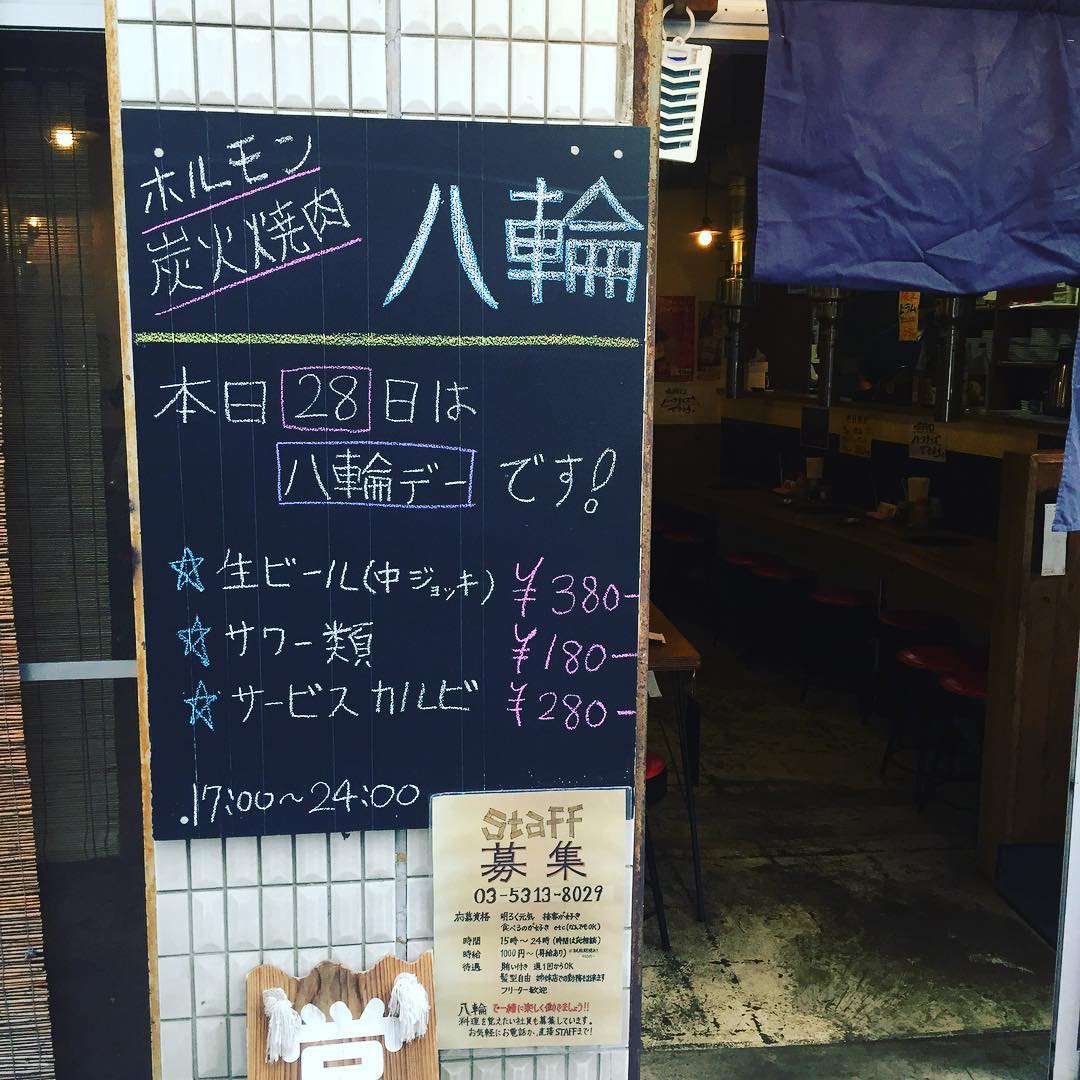 ホルモン
炭火焼肉
八輪
本日28日は
八輪デーです!
☆生ビール(中ジョッキ) ¥380-
☆サワー類 ¥180-
☆サービスカルビ ¥280-
17:00~24:00
Staff
募集
03-5313-8029
応募資格 明るく元気 接客が好き
食べるのが好き etc(なんでもOK)
時間 15時~24時(時間は応相談)
時給 1000円~(昇給あり)
待遇 賄い付き 週1回からOK
髪型自由 姉妹店での勤務も出来ます
フリーター歓迎
八輪で一緒に楽しく働きましょう!!
料理を覚えたい社員も募集しています。
お気軽にお電話か、直接STAFFまで!